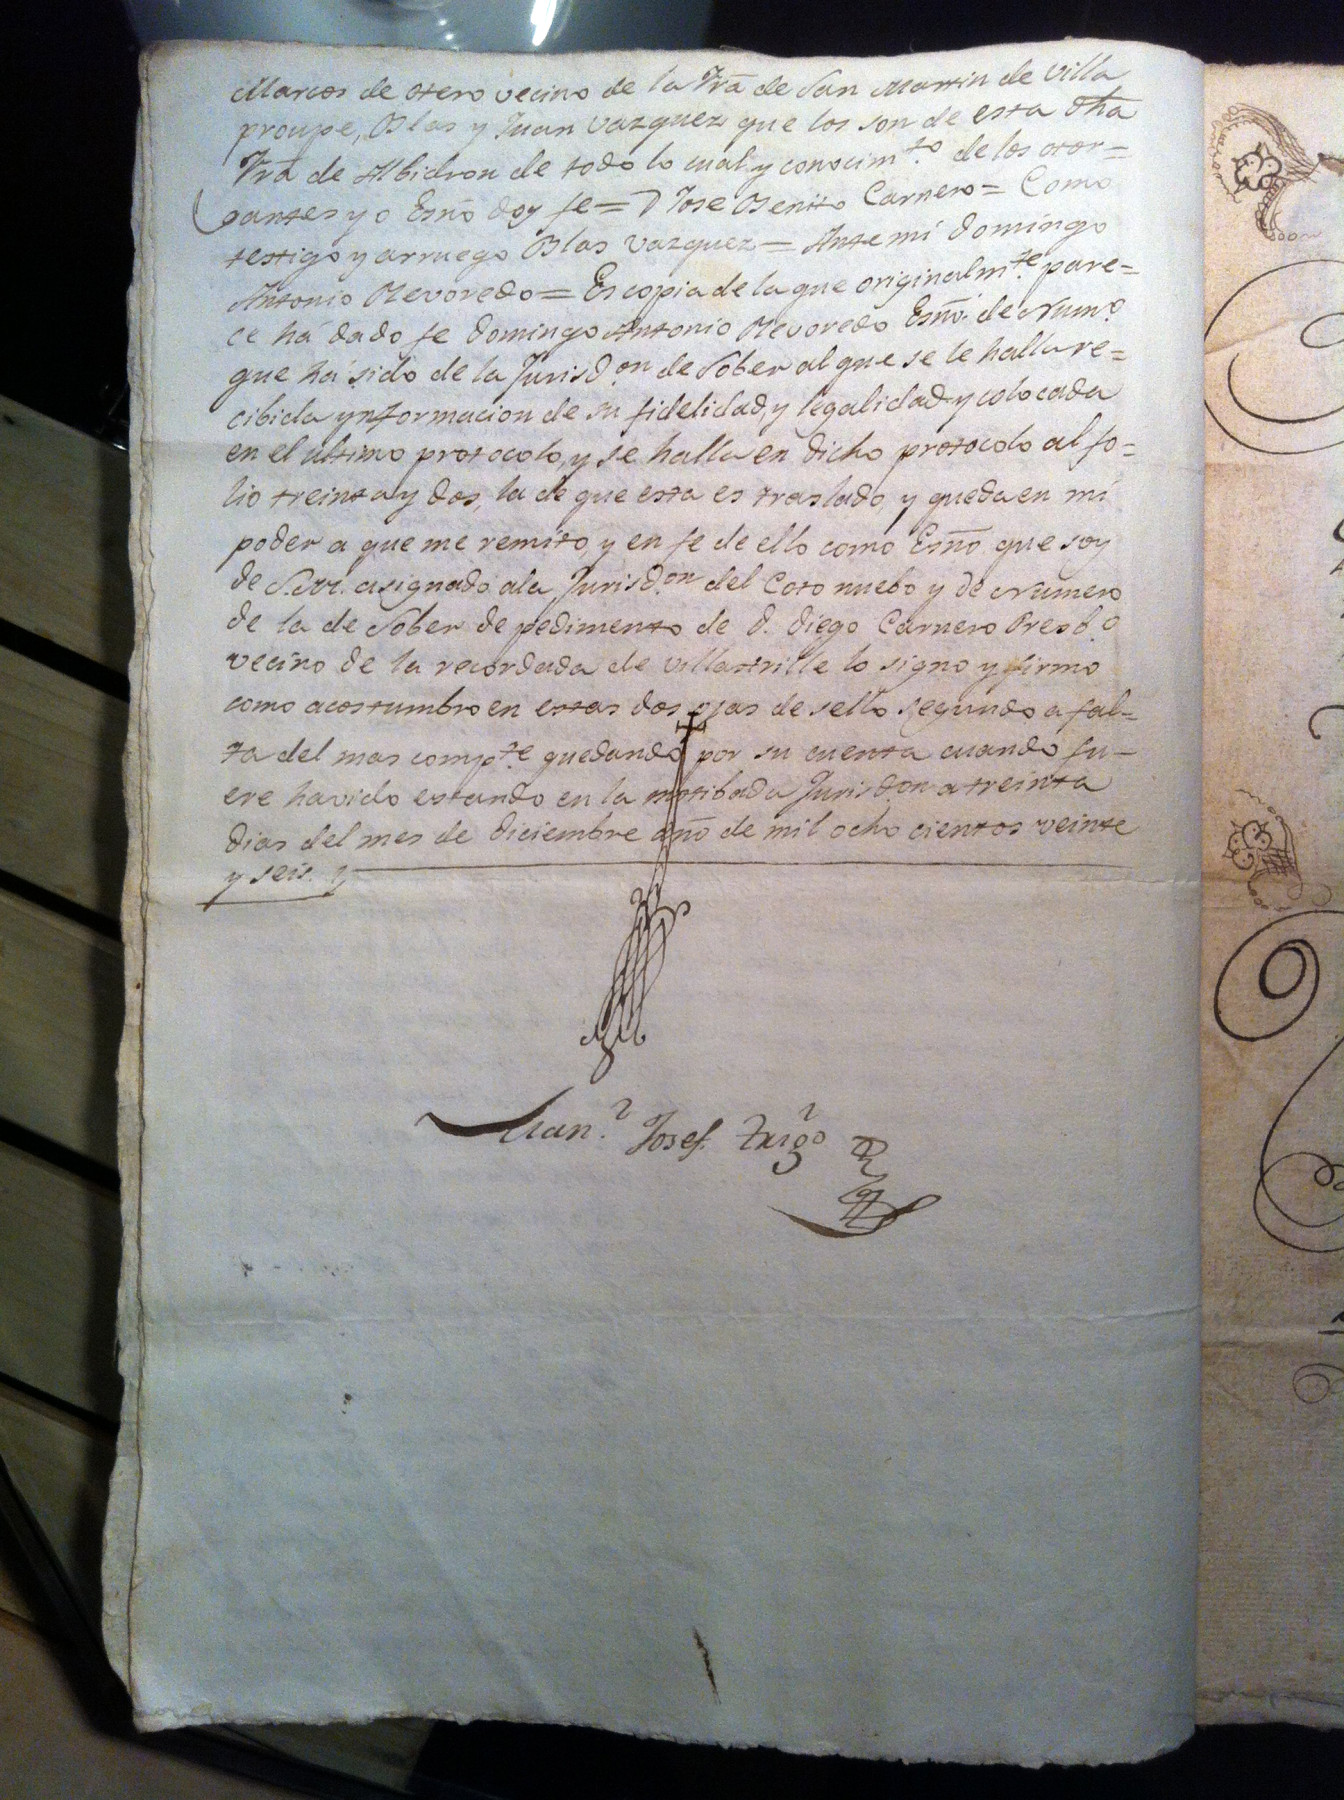 Marcos de otero vecino de la Fra de San Martin de Villa
proupe, Blas y Juan Vazquez que los son de esta dha
Fra de Abidron de todo lo cual y conocim.to de los otor=
gantes yo Esno doy fe= D Jose Benito Carnero= Como
testigo y arruego Blas Vazquez= Antemi Domingo
Antonio Revoredo= Es copia de la que originalm.te pare=
ce há dado fe Domingo Antonio Revoredo Esnó. de Num.o
que há sido de la Jurisd.on de Sober al que se le halla re=
cibida ynformacion de su fidelidad, y legalidad y colocada
en el ultimo protocolo, y se halla en dicho protocolo al fo=
lio treinta y dos, la de que esta es traslado, y queda en mi
poder a que me remito, y en fe de ello como Esno que soy
de S.M. asignado ala Jurisd.on del Coto nuebo y de Numero
de la de Sober de pedimento de D. Diego Carnero Presb.o
vecino de la recordada de Villastrille lo signo y firmo
como acostumbro en estas dos ojas de sello segundo a fal=
ta del mas comp.te quedando por su cuenta cuando fu-
ere havido estando en la motibada Jurisd.on a treinta
dias del mes de Diciembre año de mil ocho cientos veinte
y seis.
Josef